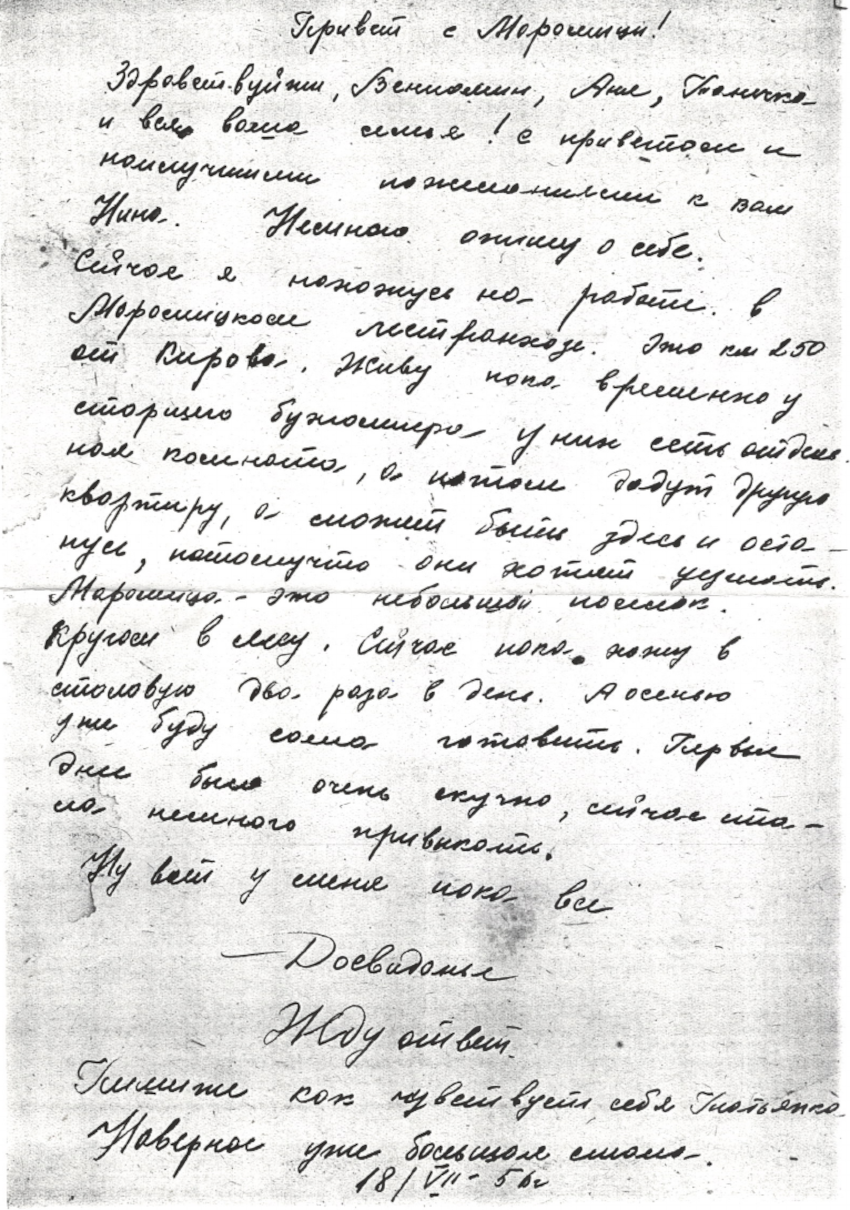 Привет с Маромицы!
Здравствуйте, Вениамин, Аня, Танечка
и вся ваша семья! с приветом и
наилучшими пожеланиями к вам
Нина. Немного опишу о себе.
Сейчас я нахожусь на работе. в
Маромицком лестранхозе. Это км 250
от Кирова. Живу пока временно у
старшего бухгалтера у них есть отдель
ная комната, а потом дадут другую
квартиру, а сможет быть здесь и оста-
нусь, потомучто они хотят уезжать.
Маромица - это небольшой поселок.
Кругом в лесу. Сейчас пока хожу в
столовую два раза в день. А осенью
уже буду сама готовить. Первые
дни было очень скучно, сейчас ста-
ла немного привыкать.
Ну вот у меня пока все
Досвиданье
Жду ответ.
Пишите как чувствует себя Татьянка
Наверное уже большая стала.
18/VII-56г